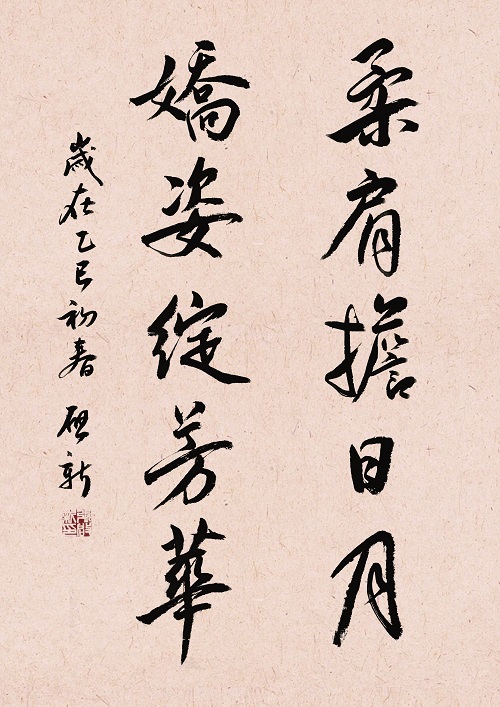 柔肩擔日月
嬌姿綻芳華
歲在乙巳初春 啟新